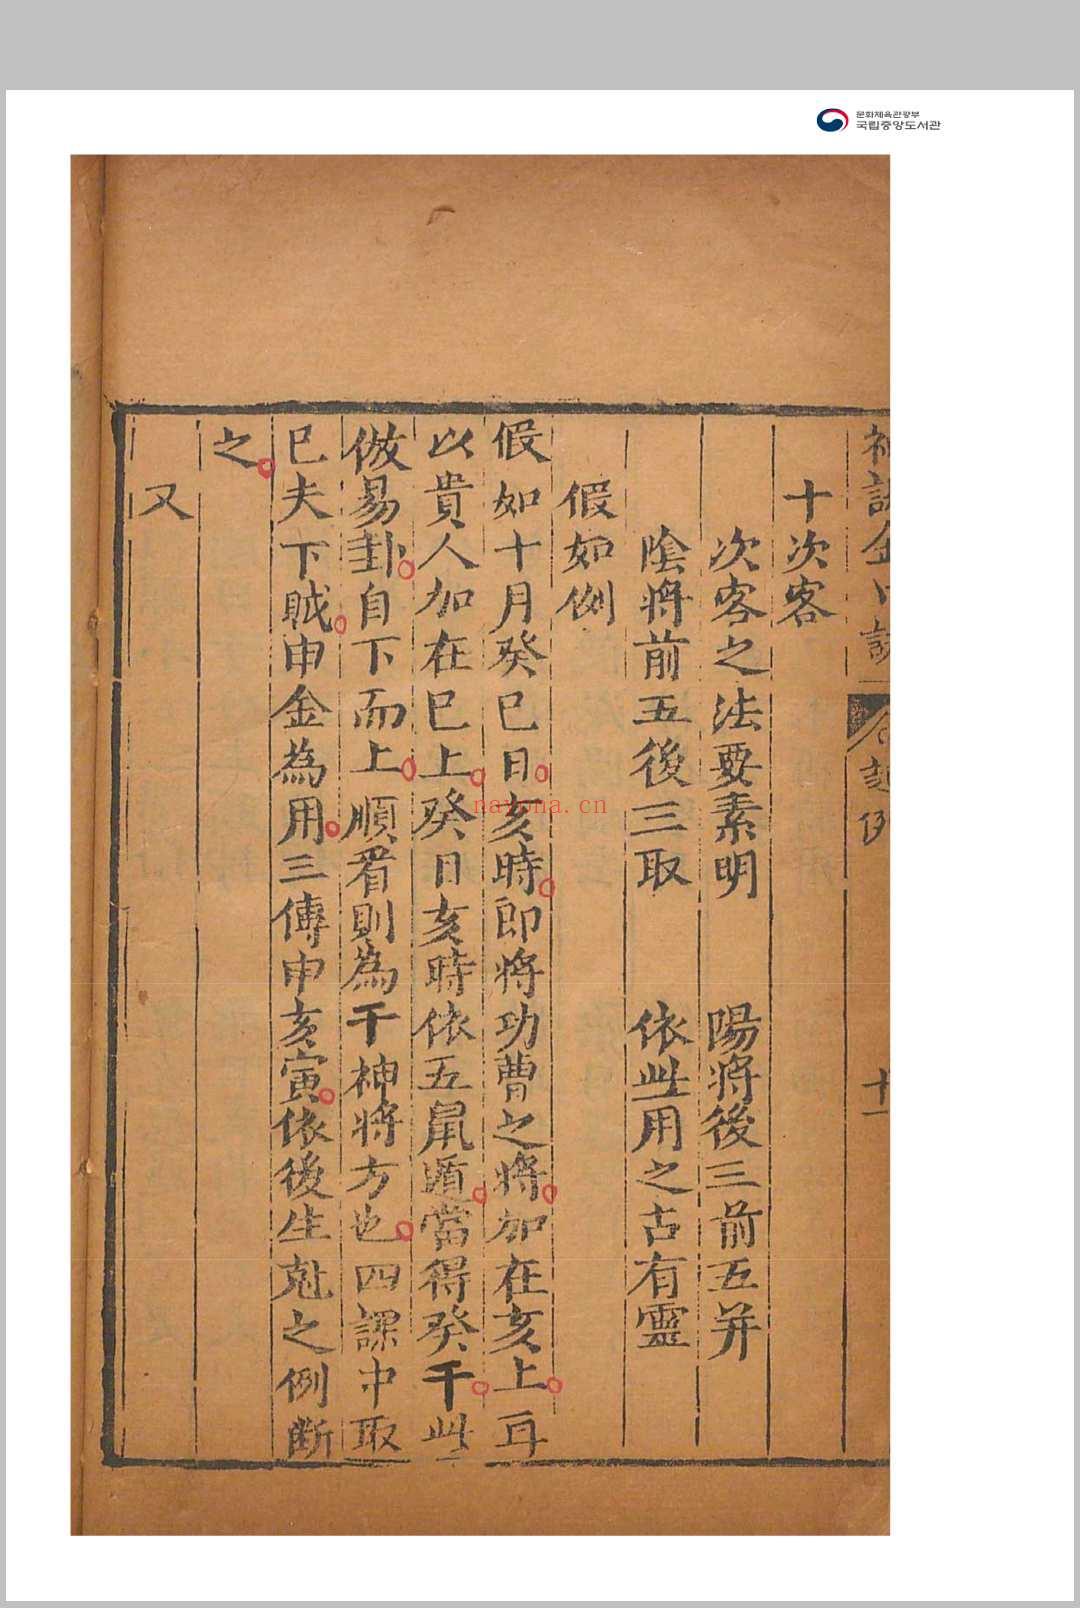 문화체육관광부
국립중앙도서관
金口訣
起例
十一
十次客
次客之法要素明 陽將後三前五并
陰將前五後三取 依此用之古有靈
假如例
假如十月癸巳日亥時即將功曹之將加在亥上再
以貴人加在巳上癸日亥時依五鼠遁當得癸干此
倣易卦自下而上順看則為干神將方也四課中取
巳夫下賊申金為用三傳申亥寅依後生尅之例斷
之
又
nayona.cn